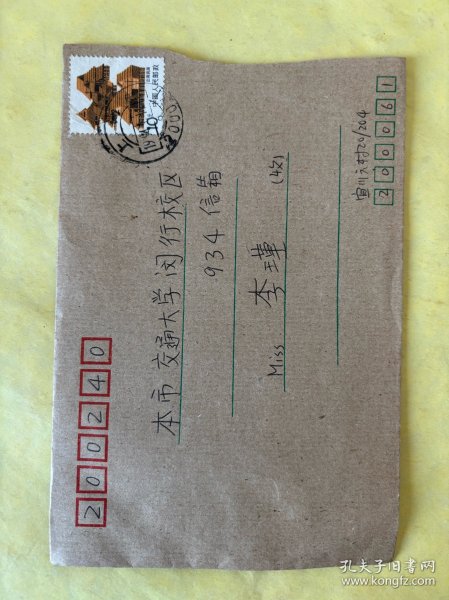 200240
本市 交通大学闵行校区
934 信箱
Miss 李瑾 (收)
宜川六村20/204
200061
中国人民邮政
10
孔夫子旧书网
www.kongfz.com